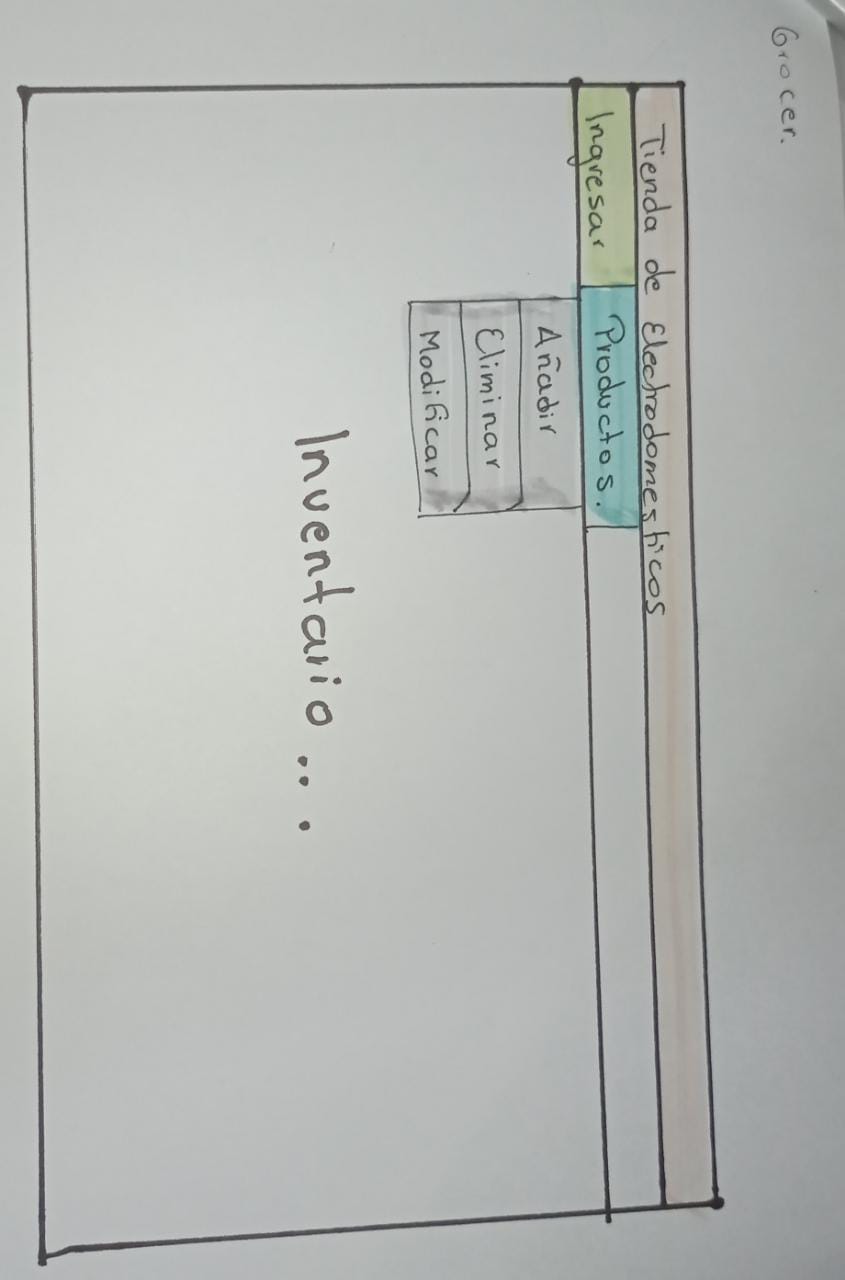 Grocer.
Tienda de Electrodomesticos
Ingresar Productos.
Añadir
Eliminar
Modificar
Inventario...